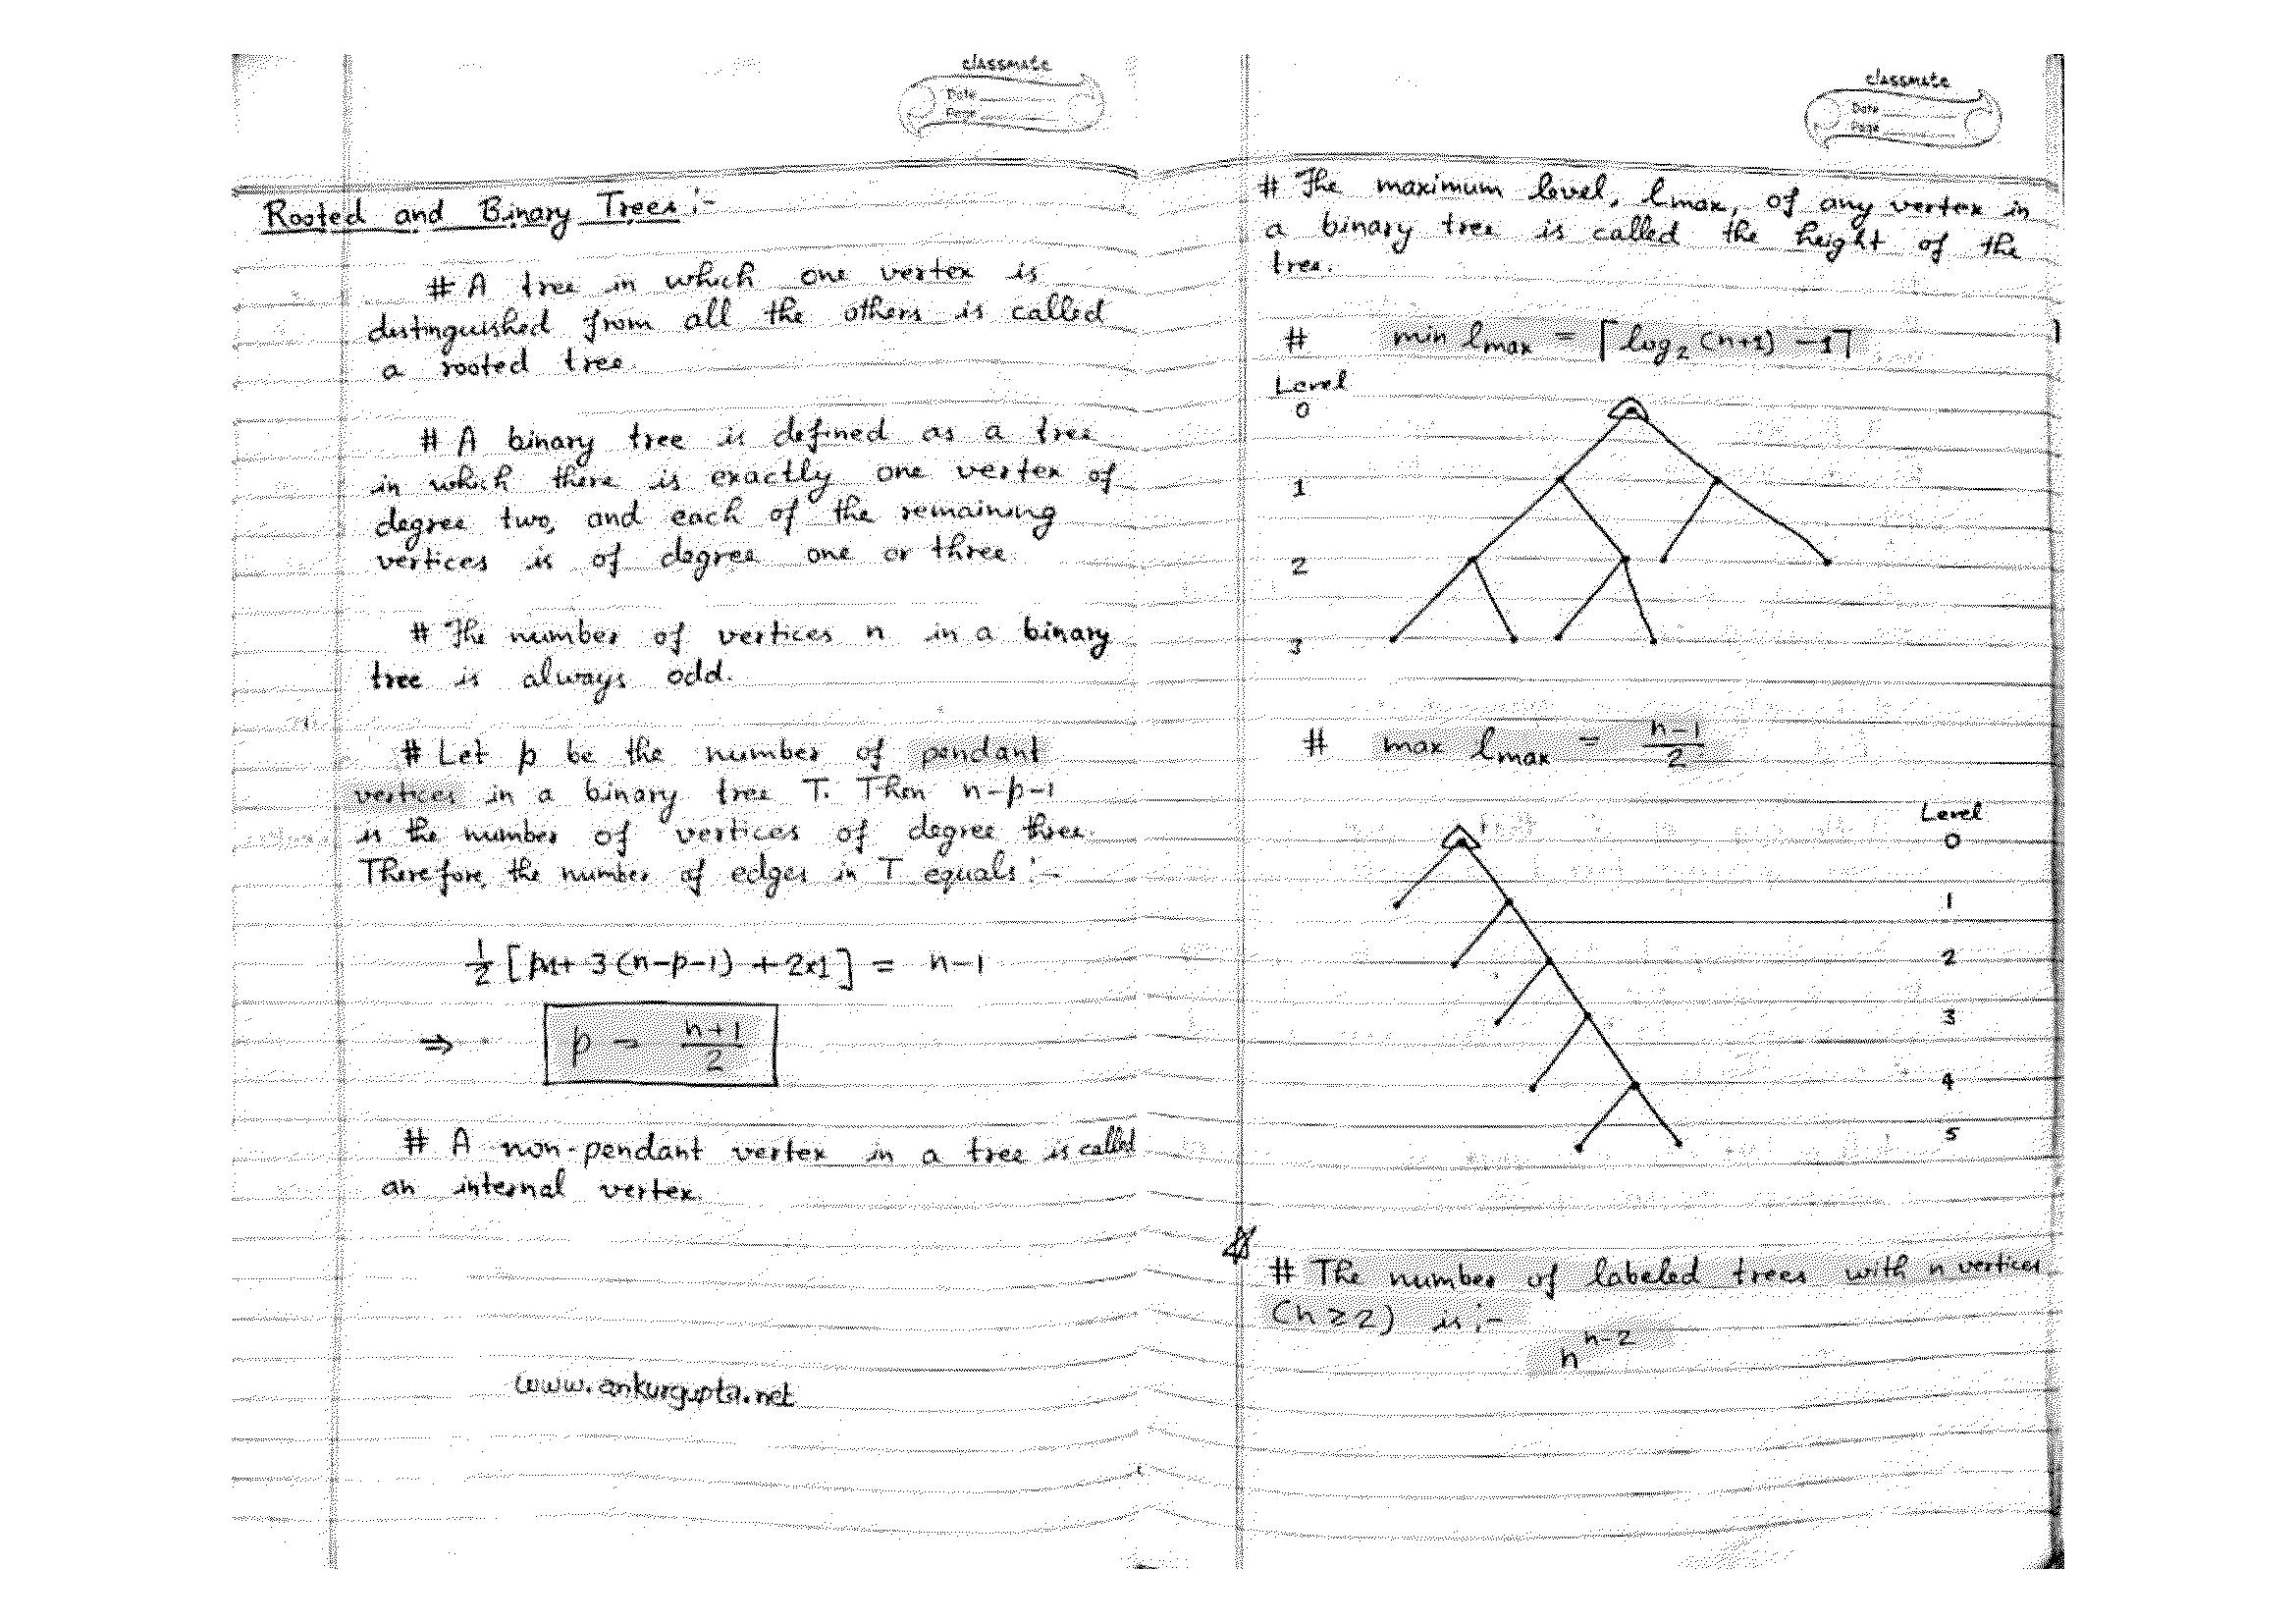 classmate
Date
Page
Rooted and Binary Trees :-
# A tree in which one vertex is
distinguished from all the others is called
a rooted tree.
# A binary tree is defined as a tree
in which there is exactly one vertex of
degree two, and each of the remaining
vertices is of degree one or three.
# The number of vertices n in a binary
tree is always odd.
# Let p be the number of pendant
vertices in a binary tree T. Then n-p-1
is the number of vertices of degree three.
Therefore, the number of edges in T equals :-
1/2 [p×1+ 3(n-p-1) + 2×1] = n-1
⇒ p = n+1/2
# A non-pendant vertex in a tree is called
an internal vertex.
www.ankurgupta.net
classmate
Date
Page
# The maximum level, lmax, of any vertex in
a binary tree is called the height of the
tree.
# min lmax = ⌈log₂ (n+1) -1⌉
Level
0
1
2
3
# max lmax = n-1/2
Level
0
1
2
3
4
5
# The number of labeled trees with n vertices
(n ≥ 2) is :-
n^n-2